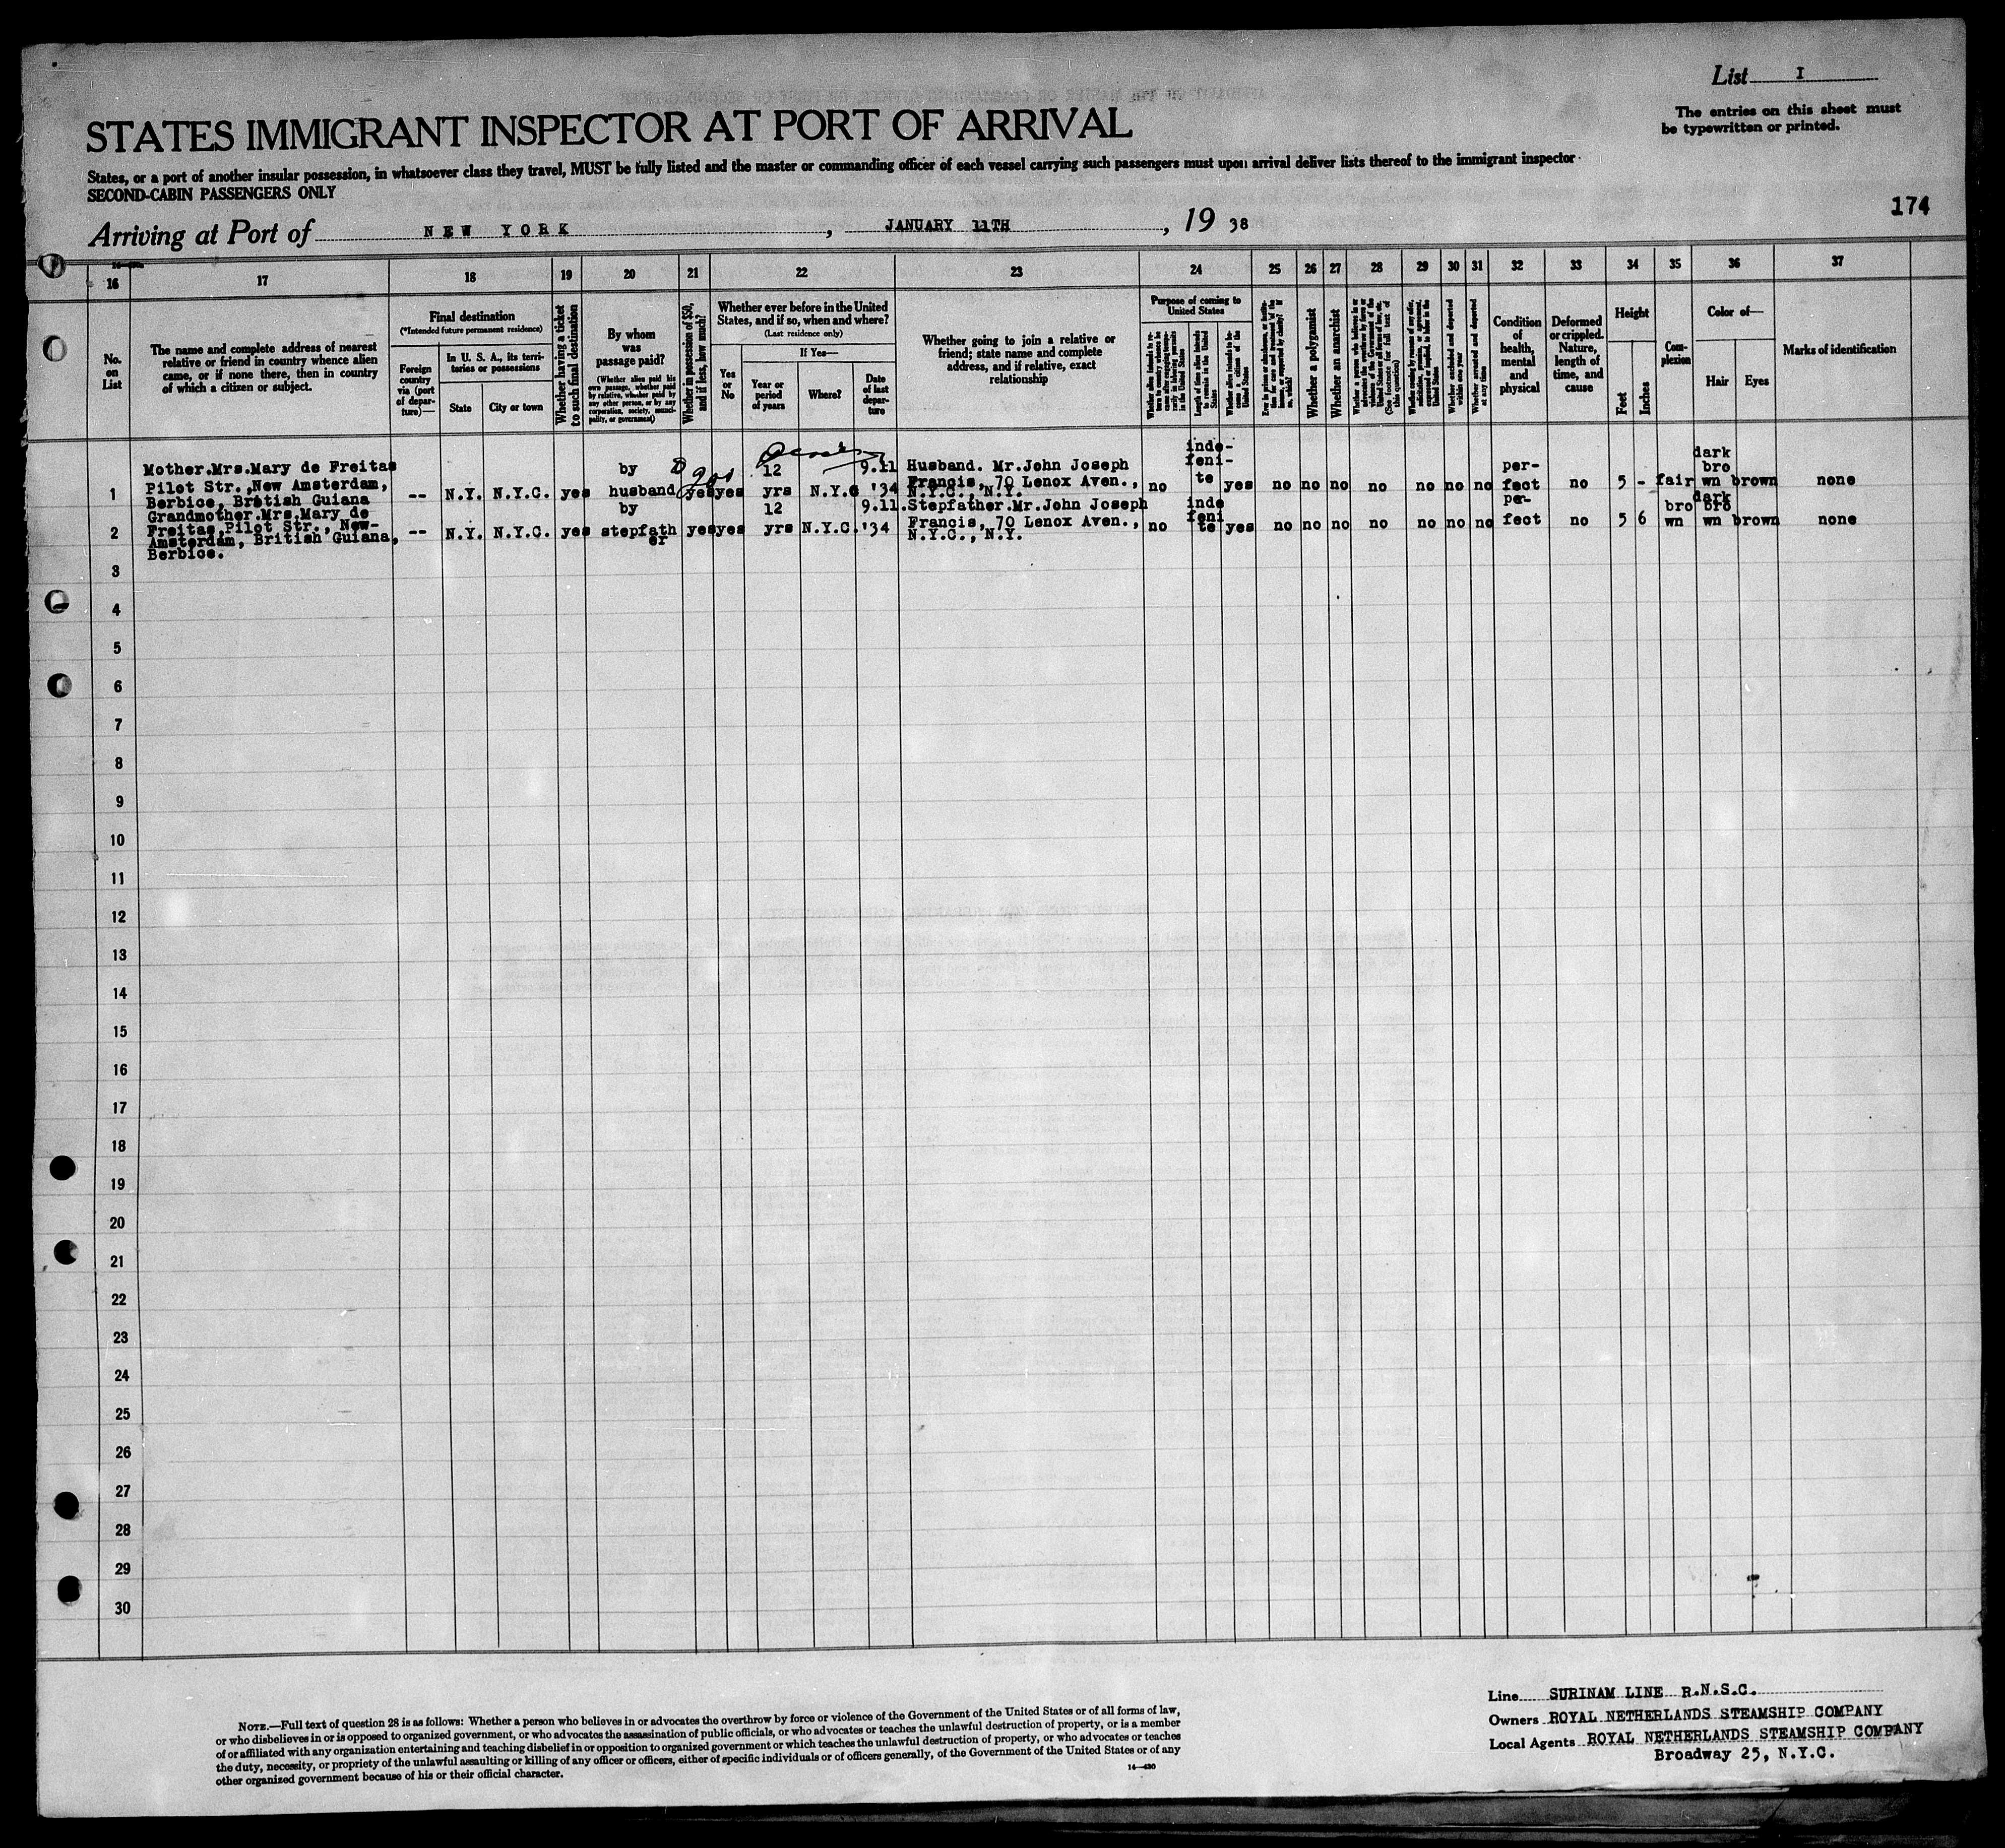 List I
The entries on this sheet must
be typewritten or printed.
STATES IMMIGRANT INSPECTOR AT PORT OF ARRIVAL
States, or a port of another insular possession, in whatsoever class they travel, MUST be fully listed and the master or commanding officer of each vessel carrying such passengers must upon arrival deliver lists thereof to the immigrant inspector
SECOND-CABIN PASSENGERS ONLY
174
Arriving at Port of NEW YORK, JANUARY 11TH, 19 38
16 17 18 19 20 21 22 23 24 25 26 27 28 29 30 31 32 33 34 35 36 37
No.
on
List
The name and complete address of nearest
relative or friend in country whence alien
came, or if none there, then in country
of which a citizen or subject.
Final destination
(*Intended future permanent residence)
Foreign
country
via (port
of depar-
ture)—
In U. S. A., its terri-
tories or possessions
State
City or town
Whether having a ticket
to such final destination
By whom
was
passage paid?
(Whether alien paid his
own passage, whether paid
by relative, whether paid by
any other person, or by any
corporation, society, munici-
pality, or government)
Whether in possession of $50,
and if less, how much?
Whether ever before in the United
States, and if so, when and where?
(Last residence only)
Yes
or
No
If Yes—
Year or
period
of years
Where?
Date
of last
depar-
ture
Whether going to join a relative or
friend; state name and complete
address, and if relative, exact
relationship
Purpose of coming to
United States
Length of time alien intends
to remain in the United
States
Whether alien intends to be-
come a citizen of the
United States
Whether a polygamist
Whether an anarchist
Whether arrested and deported
within one year
Whether arrested and deported
at any time
Condition
of
health,
mental
and
physical
Deformed
or crippled.
Nature,
length of
time, and
cause
Height
Feet
Inches
Com-
plexion
Color of—
Hair
Eyes
Marks of identification
1 Mother.Mrs.Mary de Freitas
Pilot Str.,New Amsterdam,
Berbice, British Guiana
-- N.Y. N.Y.C. yes
by
husband
yes yes
12
yrs N.Y.C
9.11
'34
Husband. Mr.John Joseph
Francis, 70 Lenox Aven.,
N.Y.C., N.Y.
no
inde-
feni-
te
yes no no no no no no no
per-
fect
no 5 - fair
dark
bro
wn
brown none
2 Grandmother.Mrs.Mary de
Freitas,Pilot Str., New-
Amsterdam, British Guiana,
Berbice.
-- N.Y. N.Y.C. yes
by
stepfath
er
yes yes
12
yrs N.Y.C.
9.11.
'34
Stepfather.Mr.John Joseph
Francis, 70 Lenox Aven.,
N.Y.C., N.Y.
no
inde
feni
te
yes no no no no no no no
per-
fect
no 5 6
bro
wn
dark
bro
wn
brown none
3
4
5
6
7
8
9
10
11
12
13
14
15
16
17
18
19
20
21
22
23
24
25
26
27
28
29
30
NOTE.—Full text of question 28 is as follows: Whether a person who believes in or advocates the overthrow by force or violence of the Government of the United States or of all forms of law,
or who disbelieves in or is opposed to organized government, or who advocates the assassination of public officials, or who advocates or teaches the unlawful destruction of property, or is a member
of or affiliated with any organization entertaining and teaching disbelief in or opposition to organized government or which teaches the unlawful destruction of property, or who advocates or teaches
the duty, necessity, or propriety of the unlawful assaulting or killing of any officer or officers, either of specific individuals or of officers generally, of the Government of the United States or of any
other organized government because of his or their official character.
14—430
Line SURINAM LINE R.N.S.C.
Owners ROYAL NETHERLANDS STEAMSHIP COMPANY
Local Agents ROYAL NETHERLANDS STEAMSHIP COMPANY
Broadway 25, N.Y.C.